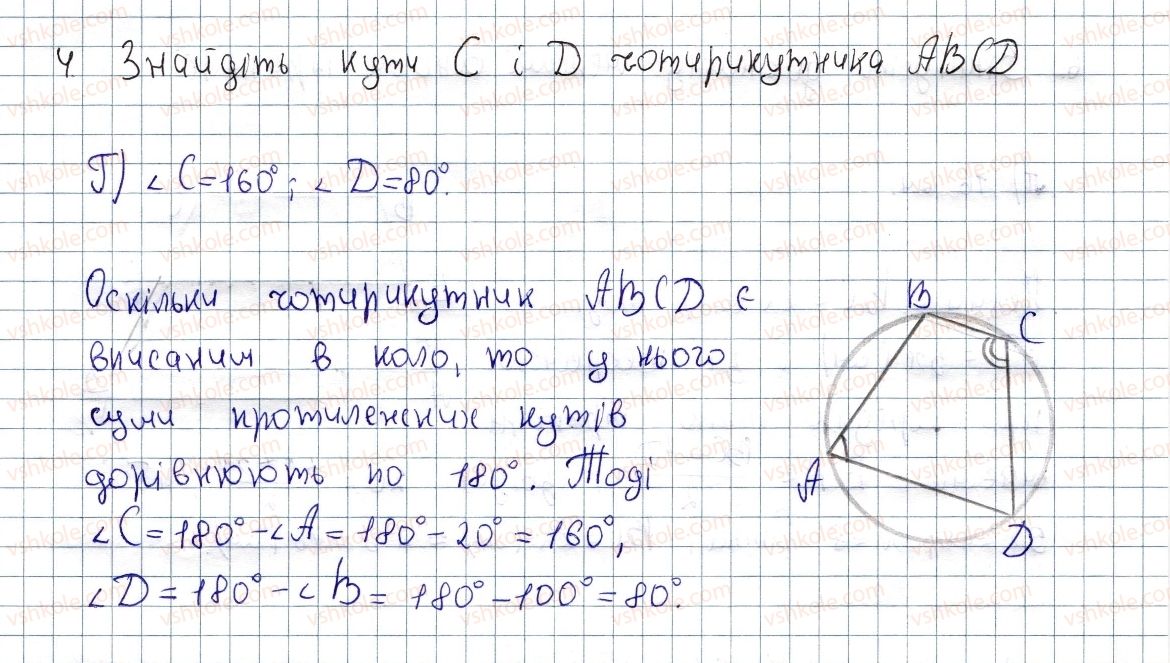 4 Знайдіть кути C і D чотирикутника ABCD
Г) ∠C=160°; ∠D=80°.
Оскільки чотирикутник ABCD є
вписаним в коло, то у нього
суми протилежних кутів
дорівнюють по 180°. Тоді
∠C=180°-∠A=180°-20°=160°,
∠D=180°-∠B=180°-100°=80°.
B
C
A
D
vshkole.com